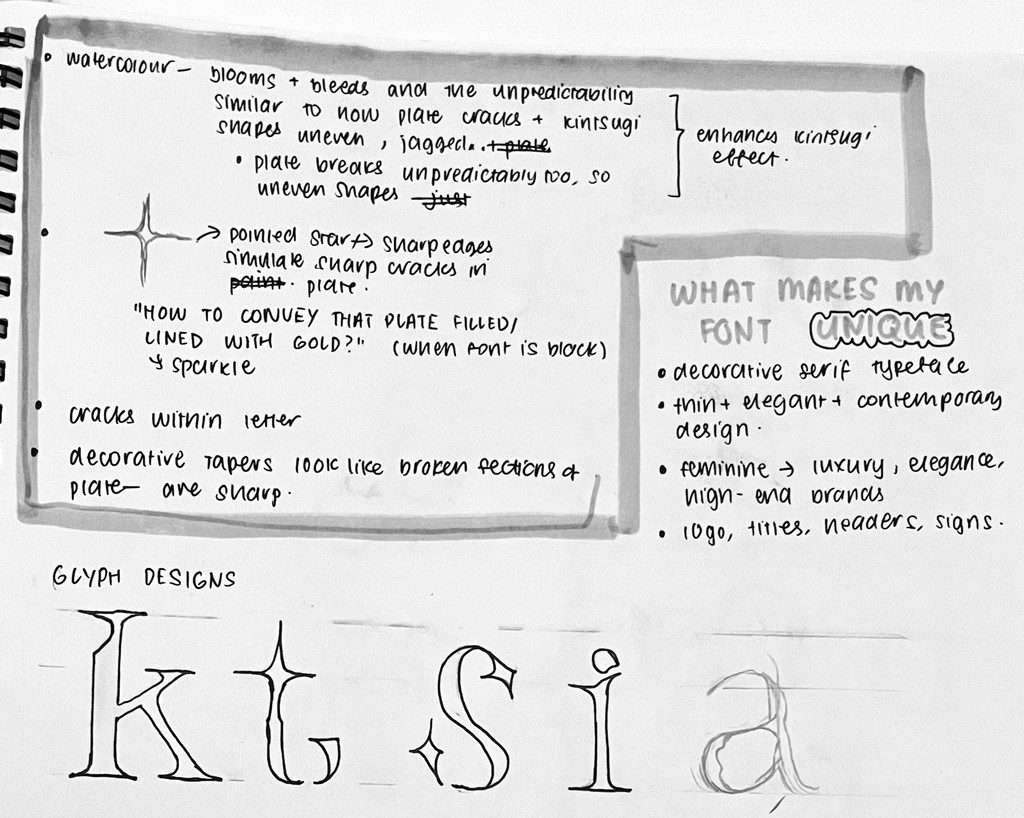 • watercolour - blooms + bleeds and the unpredictability
similar to how plate cracks + kintsugi
shapes uneven, jagged. + plate
• plate breaks unpredictably too, so
uneven shapes just
enhances kintsugi
effect.
• → pointed star → sharp edges
simulate sharp cracks in
paint. plate.
"HOW TO CONVEY THAT PLATE FILLED/
LINED WITH GOLD?" (when font is block)
↳ sparkle
• cracks within letter
• decorative tapers look like broken sections of
plate - are sharp.
WHAT MAKES MY
FONT UNIQUE
• decorative serif typeface
• thin + elegant + contemporary
design.
• feminine → luxury, elegance,
high-end brands
• logo, titles, headers, signs.
GLYPH DESIGNS
k t s i a